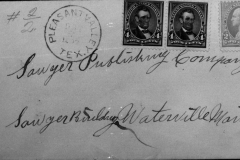 PLEASANT VALLEY
TEX.
4 4
Sawyer Publishing Company
Sawyer Building Waterville Main